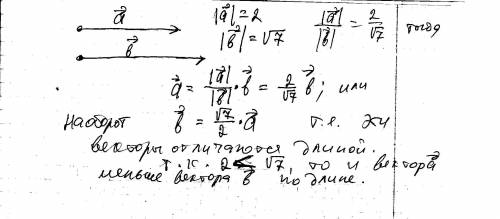 a⃗ |a⃗|=2 |a⃗|/|b⃗| = 2/√7 тогда
b⃗ |b⃗|=√7
a⃗ = |a⃗|/|b⃗| · b⃗ = 2/√7 b⃗; или
наоборот b⃗ = √7/2 · a⃗ т.е. эти
векторы отличаются длиной.
т.к. 2 < √7, то и вектор a⃗
меньше вектора b⃗ по длине.